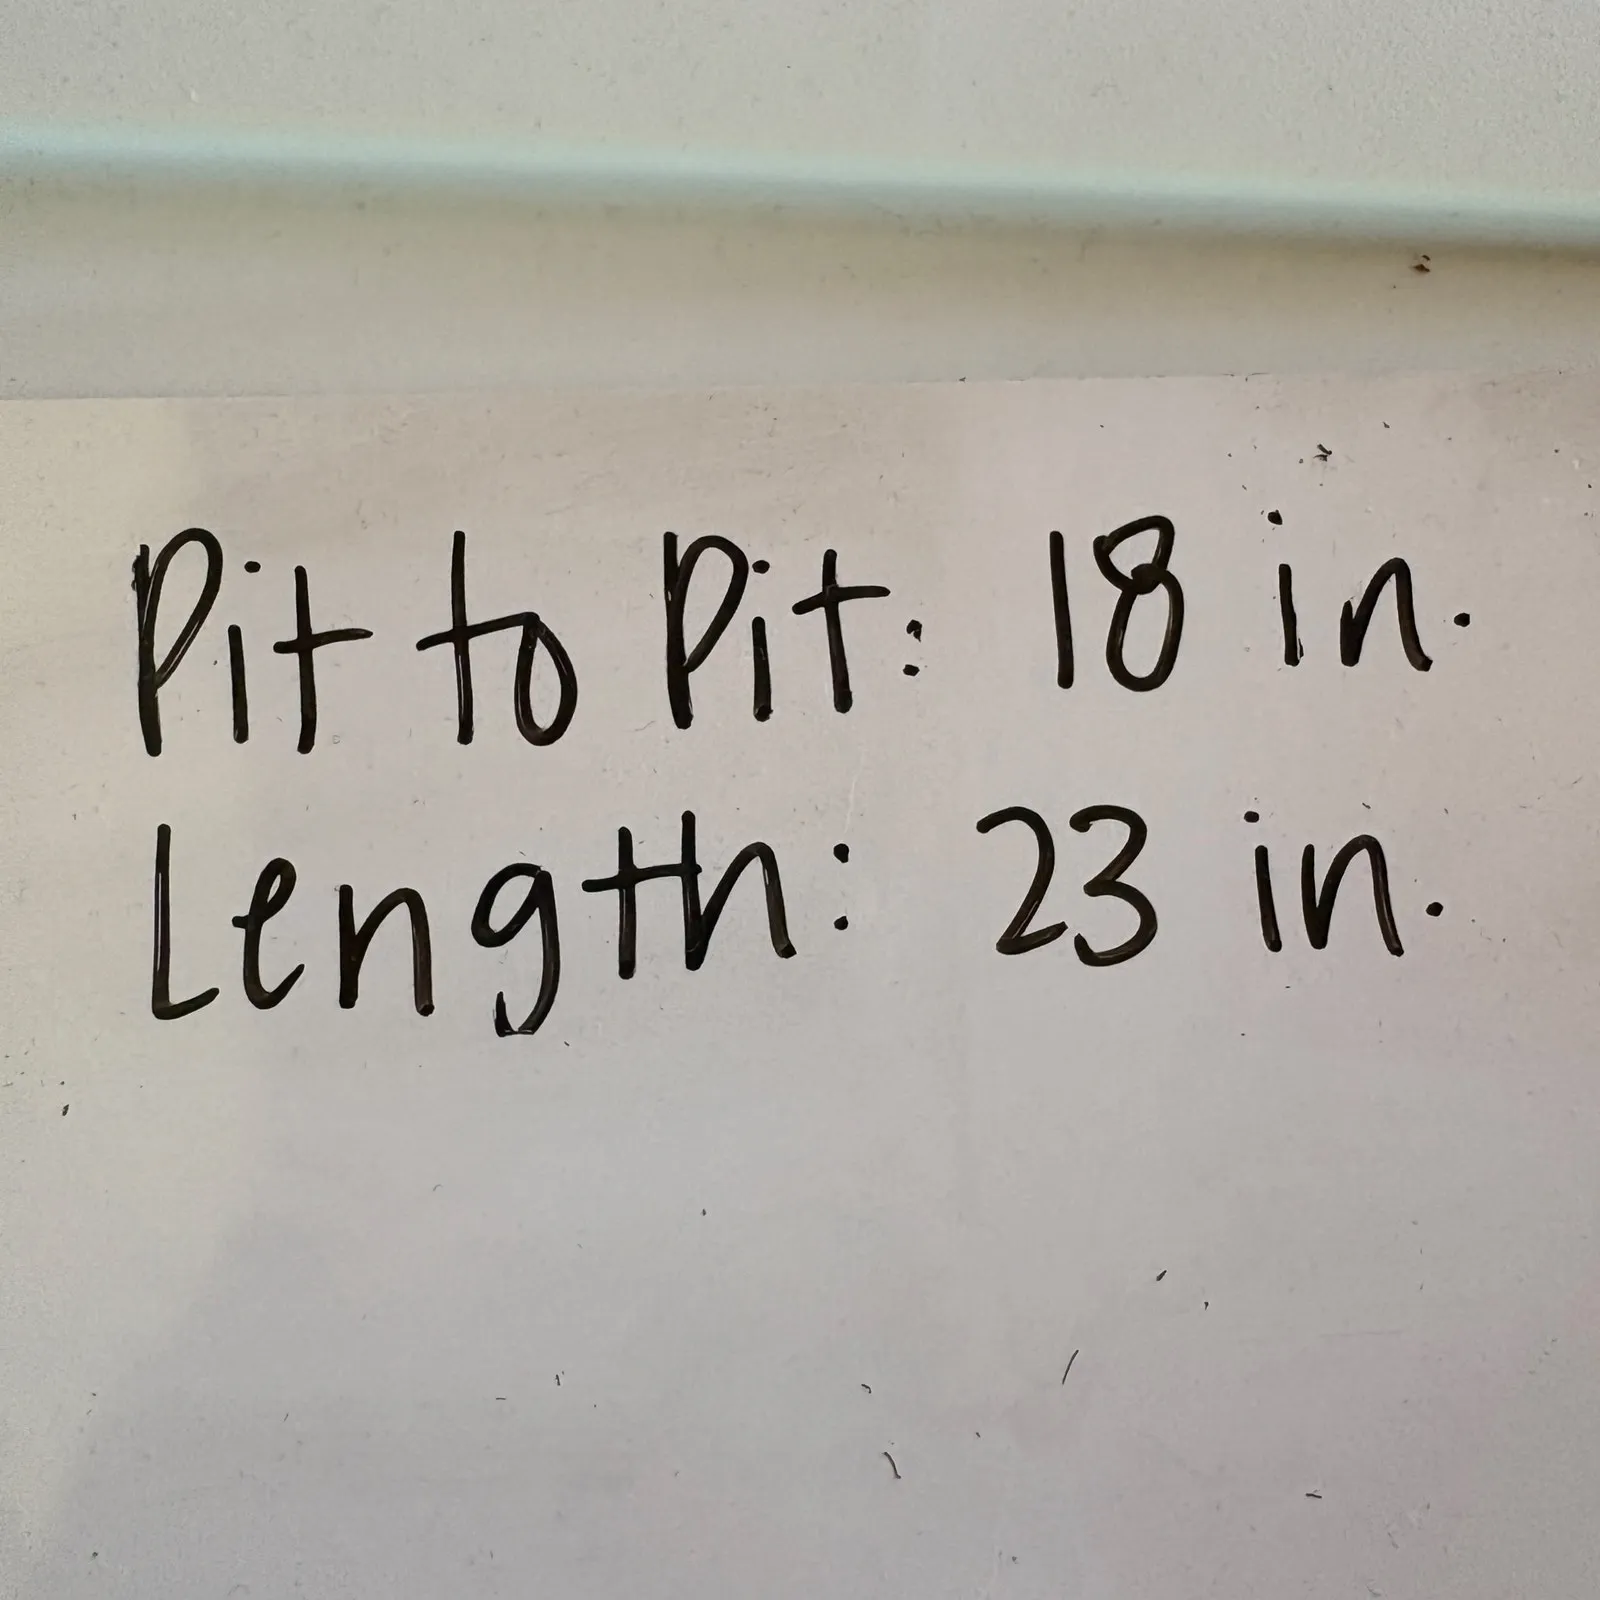 Pit to Pit: 18 in.
Length: 23 in.